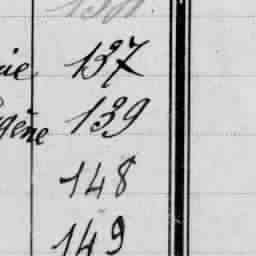 137
gène 139
148
149